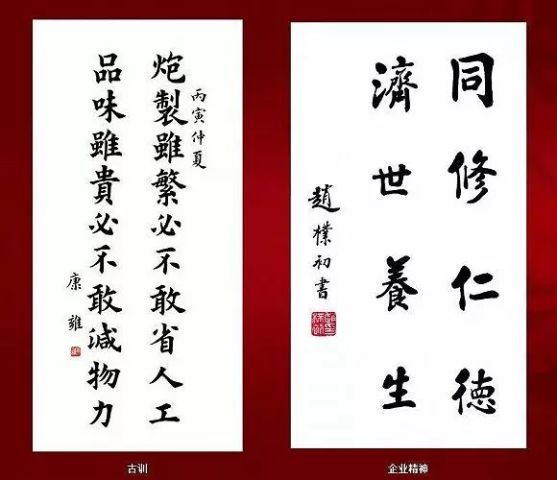 丙寅仲夏
炮製雖繁必不敢省人工
品味雖貴必不敢減物力
康雍
古训
同修仁德
濟世養生
趙樸初書
企业精神